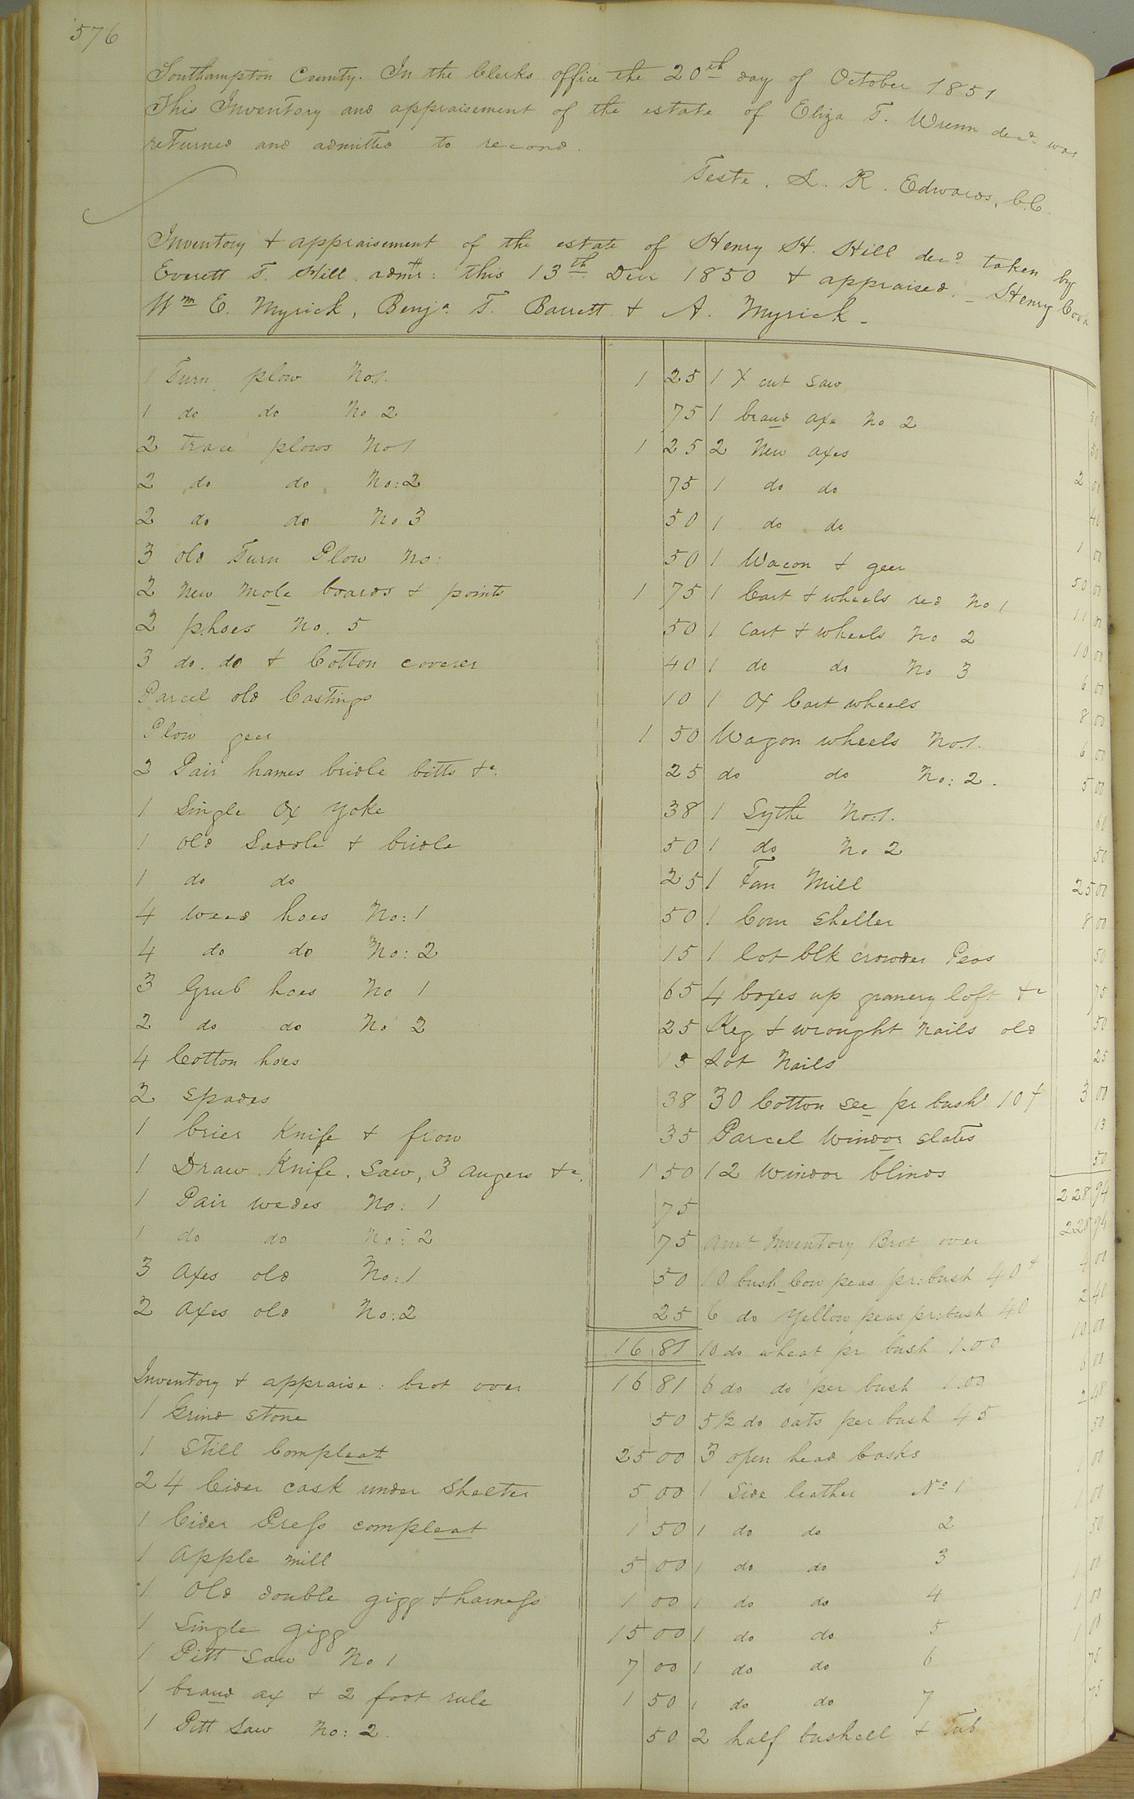 576
Southampton County. In the Clerks office the 20th day of October 1851
This Inventory and appraisement of the estate of Eliza T. Wrenn decd. was
returned and admitted to record.
Teste. L. R. Edwards, C.C.
Inventory & appraisement of the estate of Henry H. Hill decd taken by
Everett T. Hill admr: this 13th Decr 1850 & appraised. Henry Cook
Wm E. Myrick, Benja. T. Barrett & A. Myrick.
1 Turn plow No1. 1 25
1 do do No 2 75
2 trace plows No1 1 25
2 do do No:2 75
2 do do No 3 50
3 old Turn Plow No: 50
2 New Mole boards & points 1 75
2 p.hoes No. 5 50
3 do. do & Cotton coverer 40
Parcel old Castings 10
Plow geer 1 50
2 Pair hames bridle bitts &c. 25
1 Single Ox Yoke 38
1 old Saddle & bridle 50
1 do do 25
4 weed hoes No:1 50
4 do do No:2 15
3 Grub hoes No 1 65
2 do do No 2 25
4 Cotton hoes 5
2 Spades 38
1 brier Knife & frow 35
1 Draw Knife. Saw, 3 augers &c. 1 50
1 Pair wedes No: 1 75
1 do do No: 2 75
3 Axes old No:1 50
2 Axes old No:2 25
16 81
Inventory & appraise: brot over 16 81
1 Grind Stone 50
1 Still Compleat 25 00
24 Cider cask under Shelter 5 00
1 Cider Press compleat 1 50
1 Apple mill 5 00
1 Old double gigg & harness 1 00
1 Single gigg 15 00
1 Pitt Saw No 1 7 00
1 braud ax & 2 foot rule 1 50
1 Pitt Saw No: 2. 50
1 X cut Saw
1 braud axe No 2
2 New axes
1 do do 2
1 do do
1 Wacon & geer
1 Cart & wheels red No 1 50 00
1 Cart & wheels No 2 11 00
1 do do No 3 10 00
1 Ox Cart wheels 6 00
Wagon wheels No.1. 8 00
do do No: 2. 6 00
1 Sythe No:1.
1 do No 2 50
1 Fan Mill 25 00
1 Corn Sheller 8 00
1 lot blk crowder Peas 50
4 boxes up granery loft &c 75
Keg & wrought nails old 50
Lot Nails 25
30 Cotton see pr bush 10¢ 3 00
Parcel Windor Slates 13
12 Windor blinds 50
228 94
Amt Inventory Brot over 228 94
10 bush Cow peas pr:bush 40¢ 4 00
6 do Yellow peas pr:bush 40 2 40
10 do wheat pr bush 1.00 10 00
6 do do per bush 1.00 6 00
5½ do oats per bush 45 2 48
3 open head Casks 50
1 Side leather No 1
1 do do 2
1 do do 3
1 do do 4
1 do do 5
1 do do 6
1 do do 7
2 half bushell & Tub